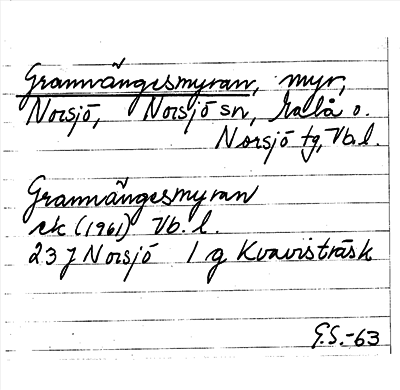 Grannvängesmyran, myr,
Norsjö, Norsjö sn, Malå o.
Norsjö tg, Vb.l.
Grannvängesmyran
ek (1961) Vb. l.
23 J Norsjö 1 g Kvavisträsk
G.S.-63